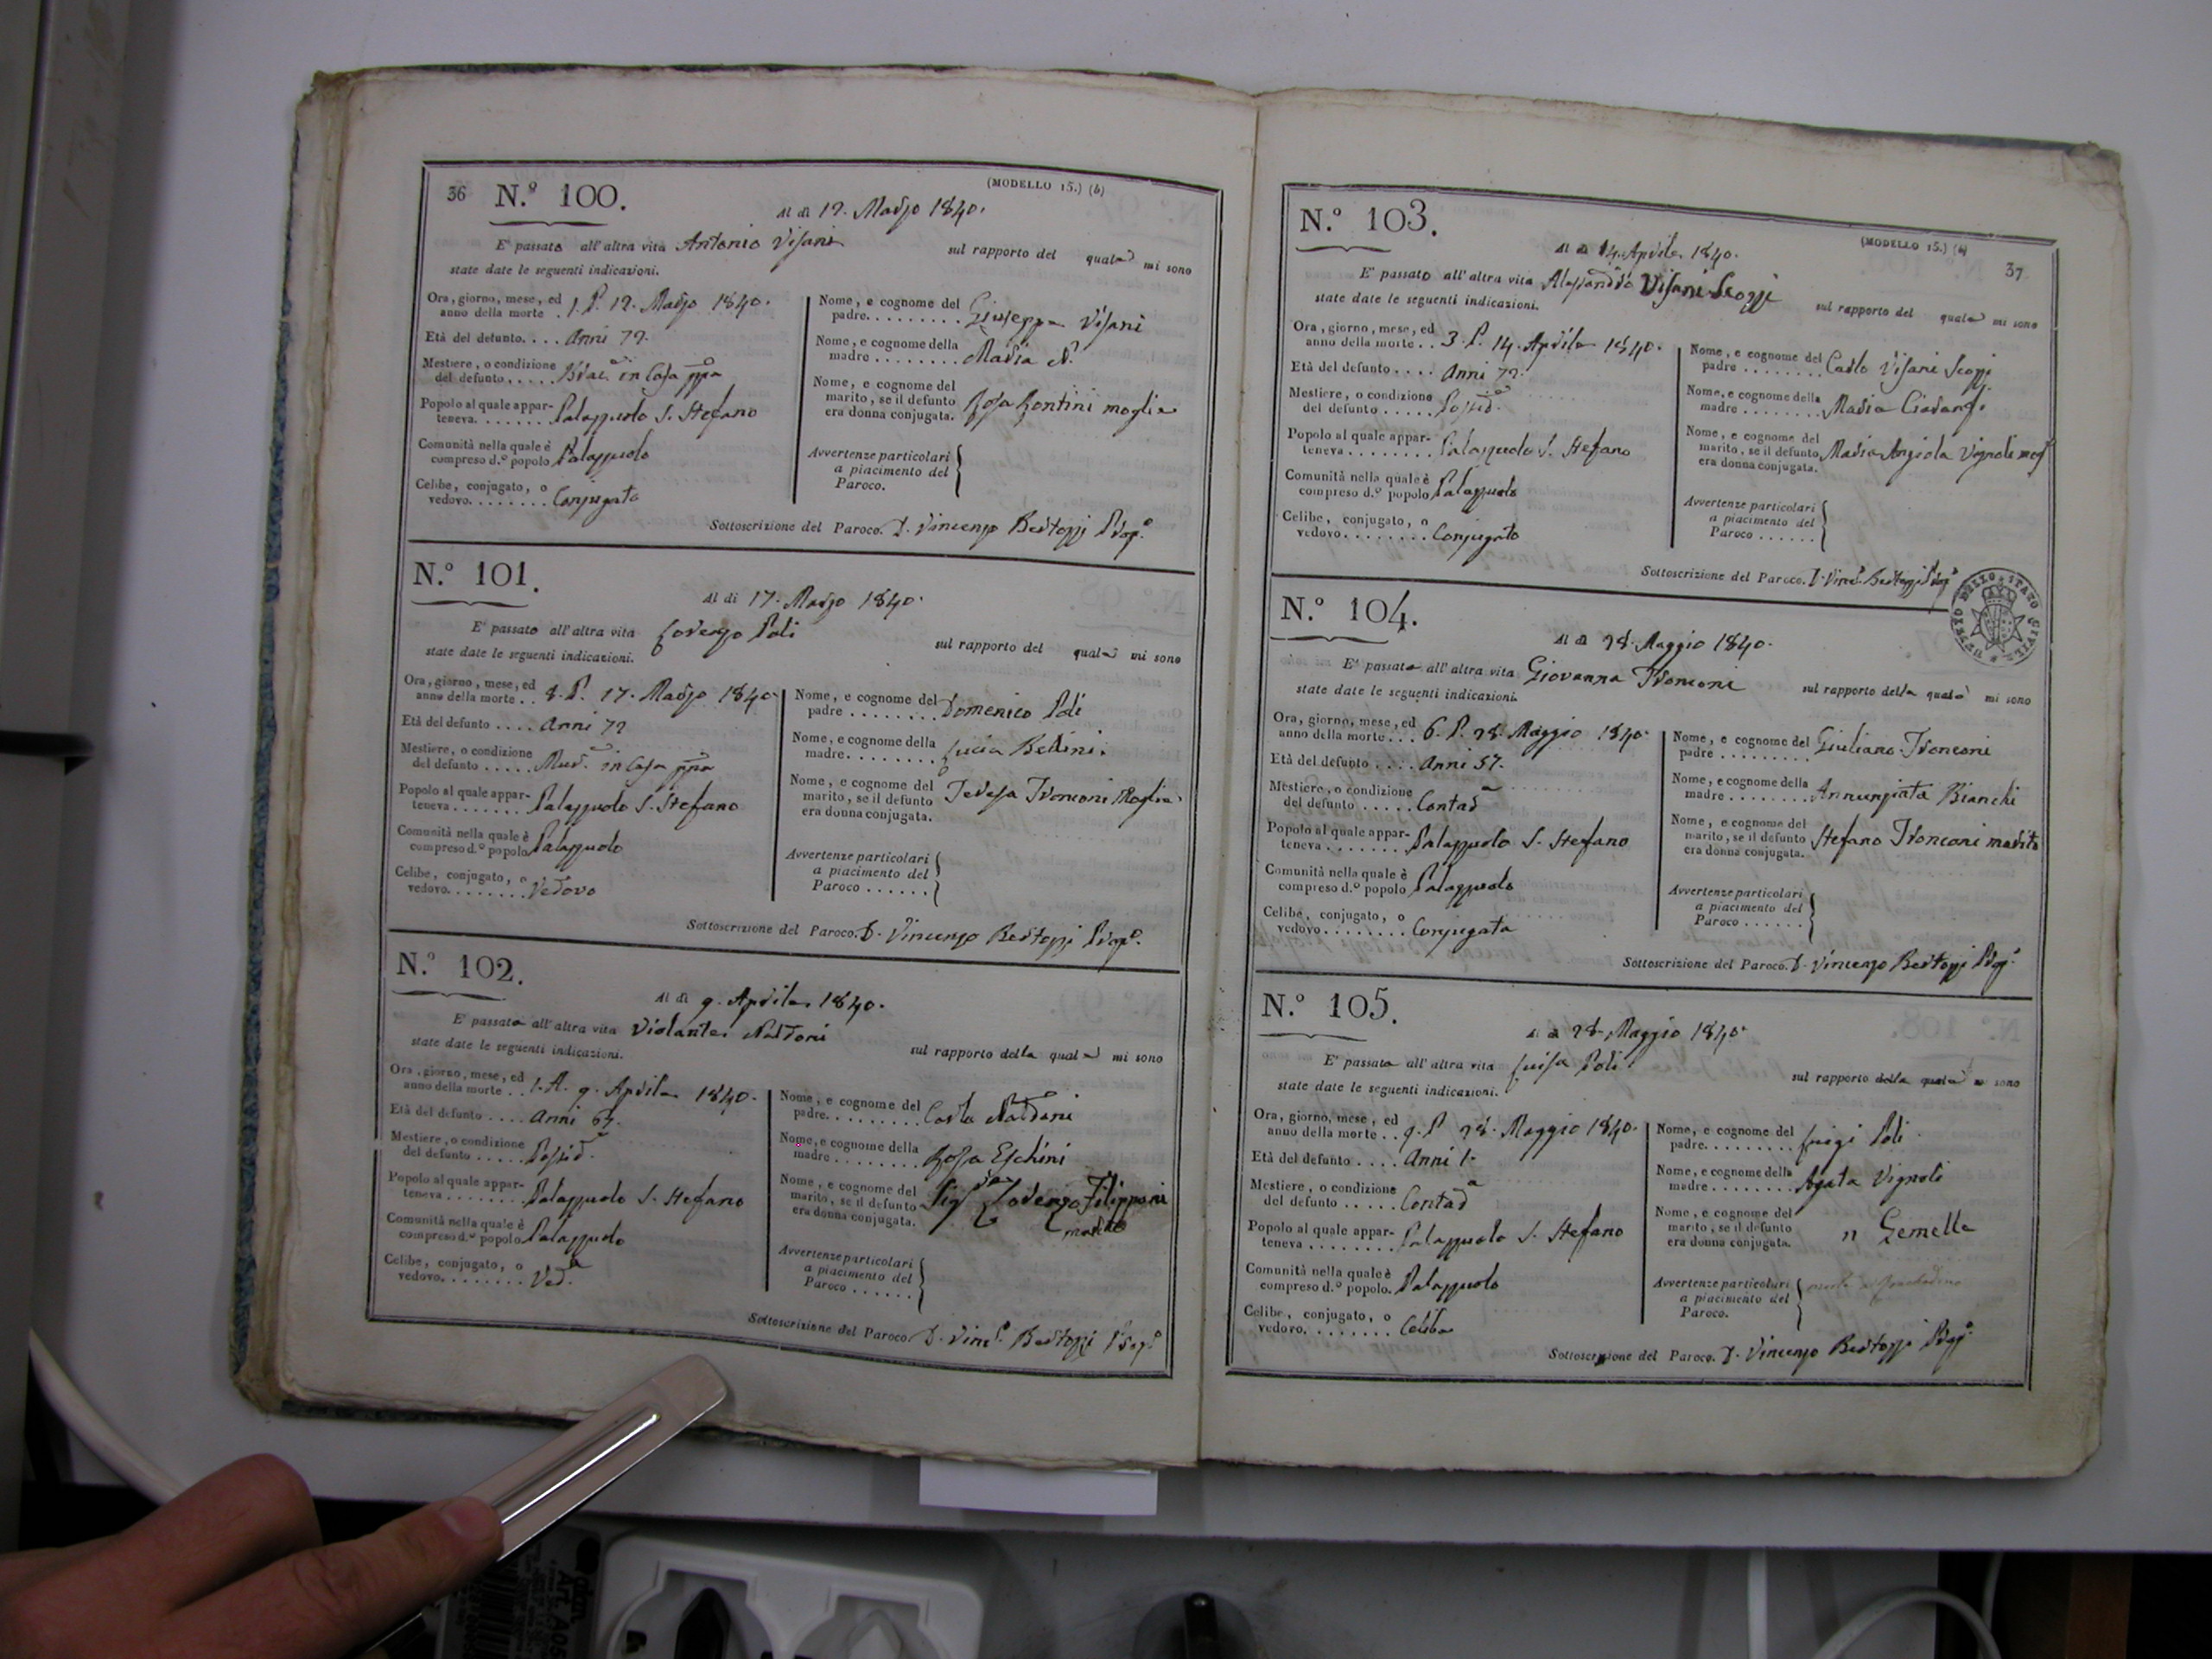 36 N.º 100. (MODELLO 15.) (b)
Al dì 12. Marzo 1840.
E' passato all'altra vita Antonio Visani sul rapporto del quale mi sono
state date le seguenti indicazioni.
Ora, giorno, mese, ed
anno della morte . 1. P. 12. Marzo 1840.
Età del defunto. . . . Anni 72.
Mestiere, o condizione
del defunto . . . . . in Casa ppa
Popolo al quale appar-
teneva. . . . . . . Palazzuolo S. Stefano
Comunità nella quale è
compreso d.º popolo Palazzuolo
Celibe, conjugato, o
vedovo. . . . . . . . Conjugato
Nome, e cognome del
padre. . . . . . . . . Giuseppe Visani
Nome, e cognome della
madre . . . . . . . . Maria N.
Nome, e cognome del
marito, se il defunto
era donna conjugata. Rosa Lontini moglie
Avvertenze particolari
a piacimento del
Paroco.
Sottoscrizione del Paroco. D. Vincenzo Bertozzi Prop.º
N.º 101.
Al dì 17. Marzo 1840.
E' passato all'altra vita Lorenzo Poli sul rapporto del quale mi sono
state date le seguenti indicazioni.
Ora, giorno, mese, ed
anno della morte . . 8. P. 17. Marzo 1840.
Età del defunto . . . . Anni 72
Mestiere, o condizione
del defunto . . . . . Mur. in Casa ppa
Popolo al quale appar-
teneva . . . . . . . Palazzuolo S. Stefano
Comunità nella quale è
compreso d.º popolo Palazzuolo
Celibe, conjugato, o
vedovo. . . . . . . . Vedovo
Nome, e cognome del
padre . . . . . . . . Domenico Poli
Nome, e cognome della
madre. . . . . . . . . Lucia Bellini.
Nome, e cognome del
marito, se il defunto
era donna conjugata. Teresa Tronconi Moglie
Avvertenze particolari
a piacimento del
Paroco . . . . . .
Sottoscrizione del Paroco. D. Vincenzo Bertozzi Prop.º
N.º 102.
Al dì 9. Aprile 1840.
E' passata all'altra vita Violante Naldoni sul rapporto della quale mi sono
state date le seguenti indicazioni.
Ora, giorno, mese, ed
anno della morte . . 1. A. 9. Aprile 1840.
Età del defunto . . . . Anni
Mestiere, o condizione
del defunto . . . . . Possid.
Popolo al quale appar-
teneva . . . . . . . . Palazzuolo S. Stefano
Comunità nella quale è
compreso d.º popolo Palazzuolo
Celibe, conjugato, o
vedovo. . . . . . . . Ved.ª
Nome, e cognome del
padre. . . . . . . . . Carlo Naldoni
Nome, e cognome della
madre . . . . . . . . Rosa Eschini
Nome, e cognome del
marito, se il defunto
era donna conjugata. Sig.r Lorenzo Filipponi
marito
Avvertenze particolari
a piacimento del
Paroco . . . . . .
Sottoscrizione del Paroco. D. Vinc.º Bertozzi Prop.º
N.º 103. (MODELLO 15.) (b) 37
Al dì 14. Aprile 1840.
E' passato all'altra vita Alessandro Visani Scozzi sul rapporto del quale mi sono
state date le seguenti indicazioni.
Ora, giorno, mese, ed
anno della morte . . 3. P. 14. Aprile 1840.
Età del defunto . . . . Anni 72.
Mestiere, o condizione
del defunto . . . . . Possid.
Popolo al quale appar-
teneva . . . . . . . . Palazzuolo S. Stefano
Comunità nella quale è
compreso d.º popolo Palazzuolo
Celibe, conjugato, o
vedovo. . . . . . . . Conjugato
Nome, e cognome del
padre . . . . . . . . Carlo Visani Scozzi
Nome, e cognome della
madre . . . . . . . . Maria
Nome, e cognome del
marito, se il defunto
era donna conjugata. Maria Angiola Vignoli mog
Avvertenze particolari
a piacimento del
Paroco . . . . . .
Sottoscrizione del Paroco. D. Vinc.º Bertozzi Prop.º
N.º 104.
Al dì 28. Maggio 1840.
E' passata all'altra vita Giovanna Tronconi sul rapporto della quale mi sono
state date le seguenti indicazioni.
Ora, giorno, mese, ed
anno della morte . . . 6. P. 28. Maggio 1840.
Età del defunto . . . . Anni 57.
Mestiere, o condizione
del defunto . . . . . Contad.ª
Popolo al quale appar-
teneva . . . . . . . . Palazzuolo S. Stefano
Comunità nella quale è
compreso d.º popolo Palazzuolo
Celibe, conjugato, o
vedovo. . . . . . . . Conjugata
Nome, e cognome del
padre . . . . . . . . . Giuliano Tronconi
Nome, e cognome della
madre . . . . . . . . Annunziata Bianchi
Nome, e cognome del
marito, se il defunto
era donna conjugata. Stefano Tronconi marito
Avvertenze particolari
a piacimento del
Paroco . . . . . .
Sottoscrizione del Paroco. D. Vincenzo Bertozzi Prop.º
N.º 105.
Al dì 28. Maggio 1840.
E' passata all'altra vita Luisa Poli sul rapporto della quale mi sono
state date le seguenti indicazioni.
Ora, giorno, mese, ed
anno della morte . . 9. P 28. Maggio 1840.
Età del defunto . . . . Anni 1.
Mestiere, o condizione
del defunto . . . . . Contad.ª
Popolo al quale appar-
teneva . . . . . . . . Palazzuolo S. Stefano
Comunità nella quale è
compreso d.º popolo. Palazzuolo
Celibe, conjugato, o
vedovo. . . . . . . . Celibe
Nome, e cognome del
padre. . . . . . . . . Luigi Poli
Nome, e cognome della
madre . . . . . . . . Agata Vignoli
Nome, e cognome del
marito, se il defunto
era donna conjugata. n Gemella
Avvertenze particolari
a piacimento del
Paroco.
Sottoscrizione del Paroco. D. Vincenzo Bertozzi Prop.º